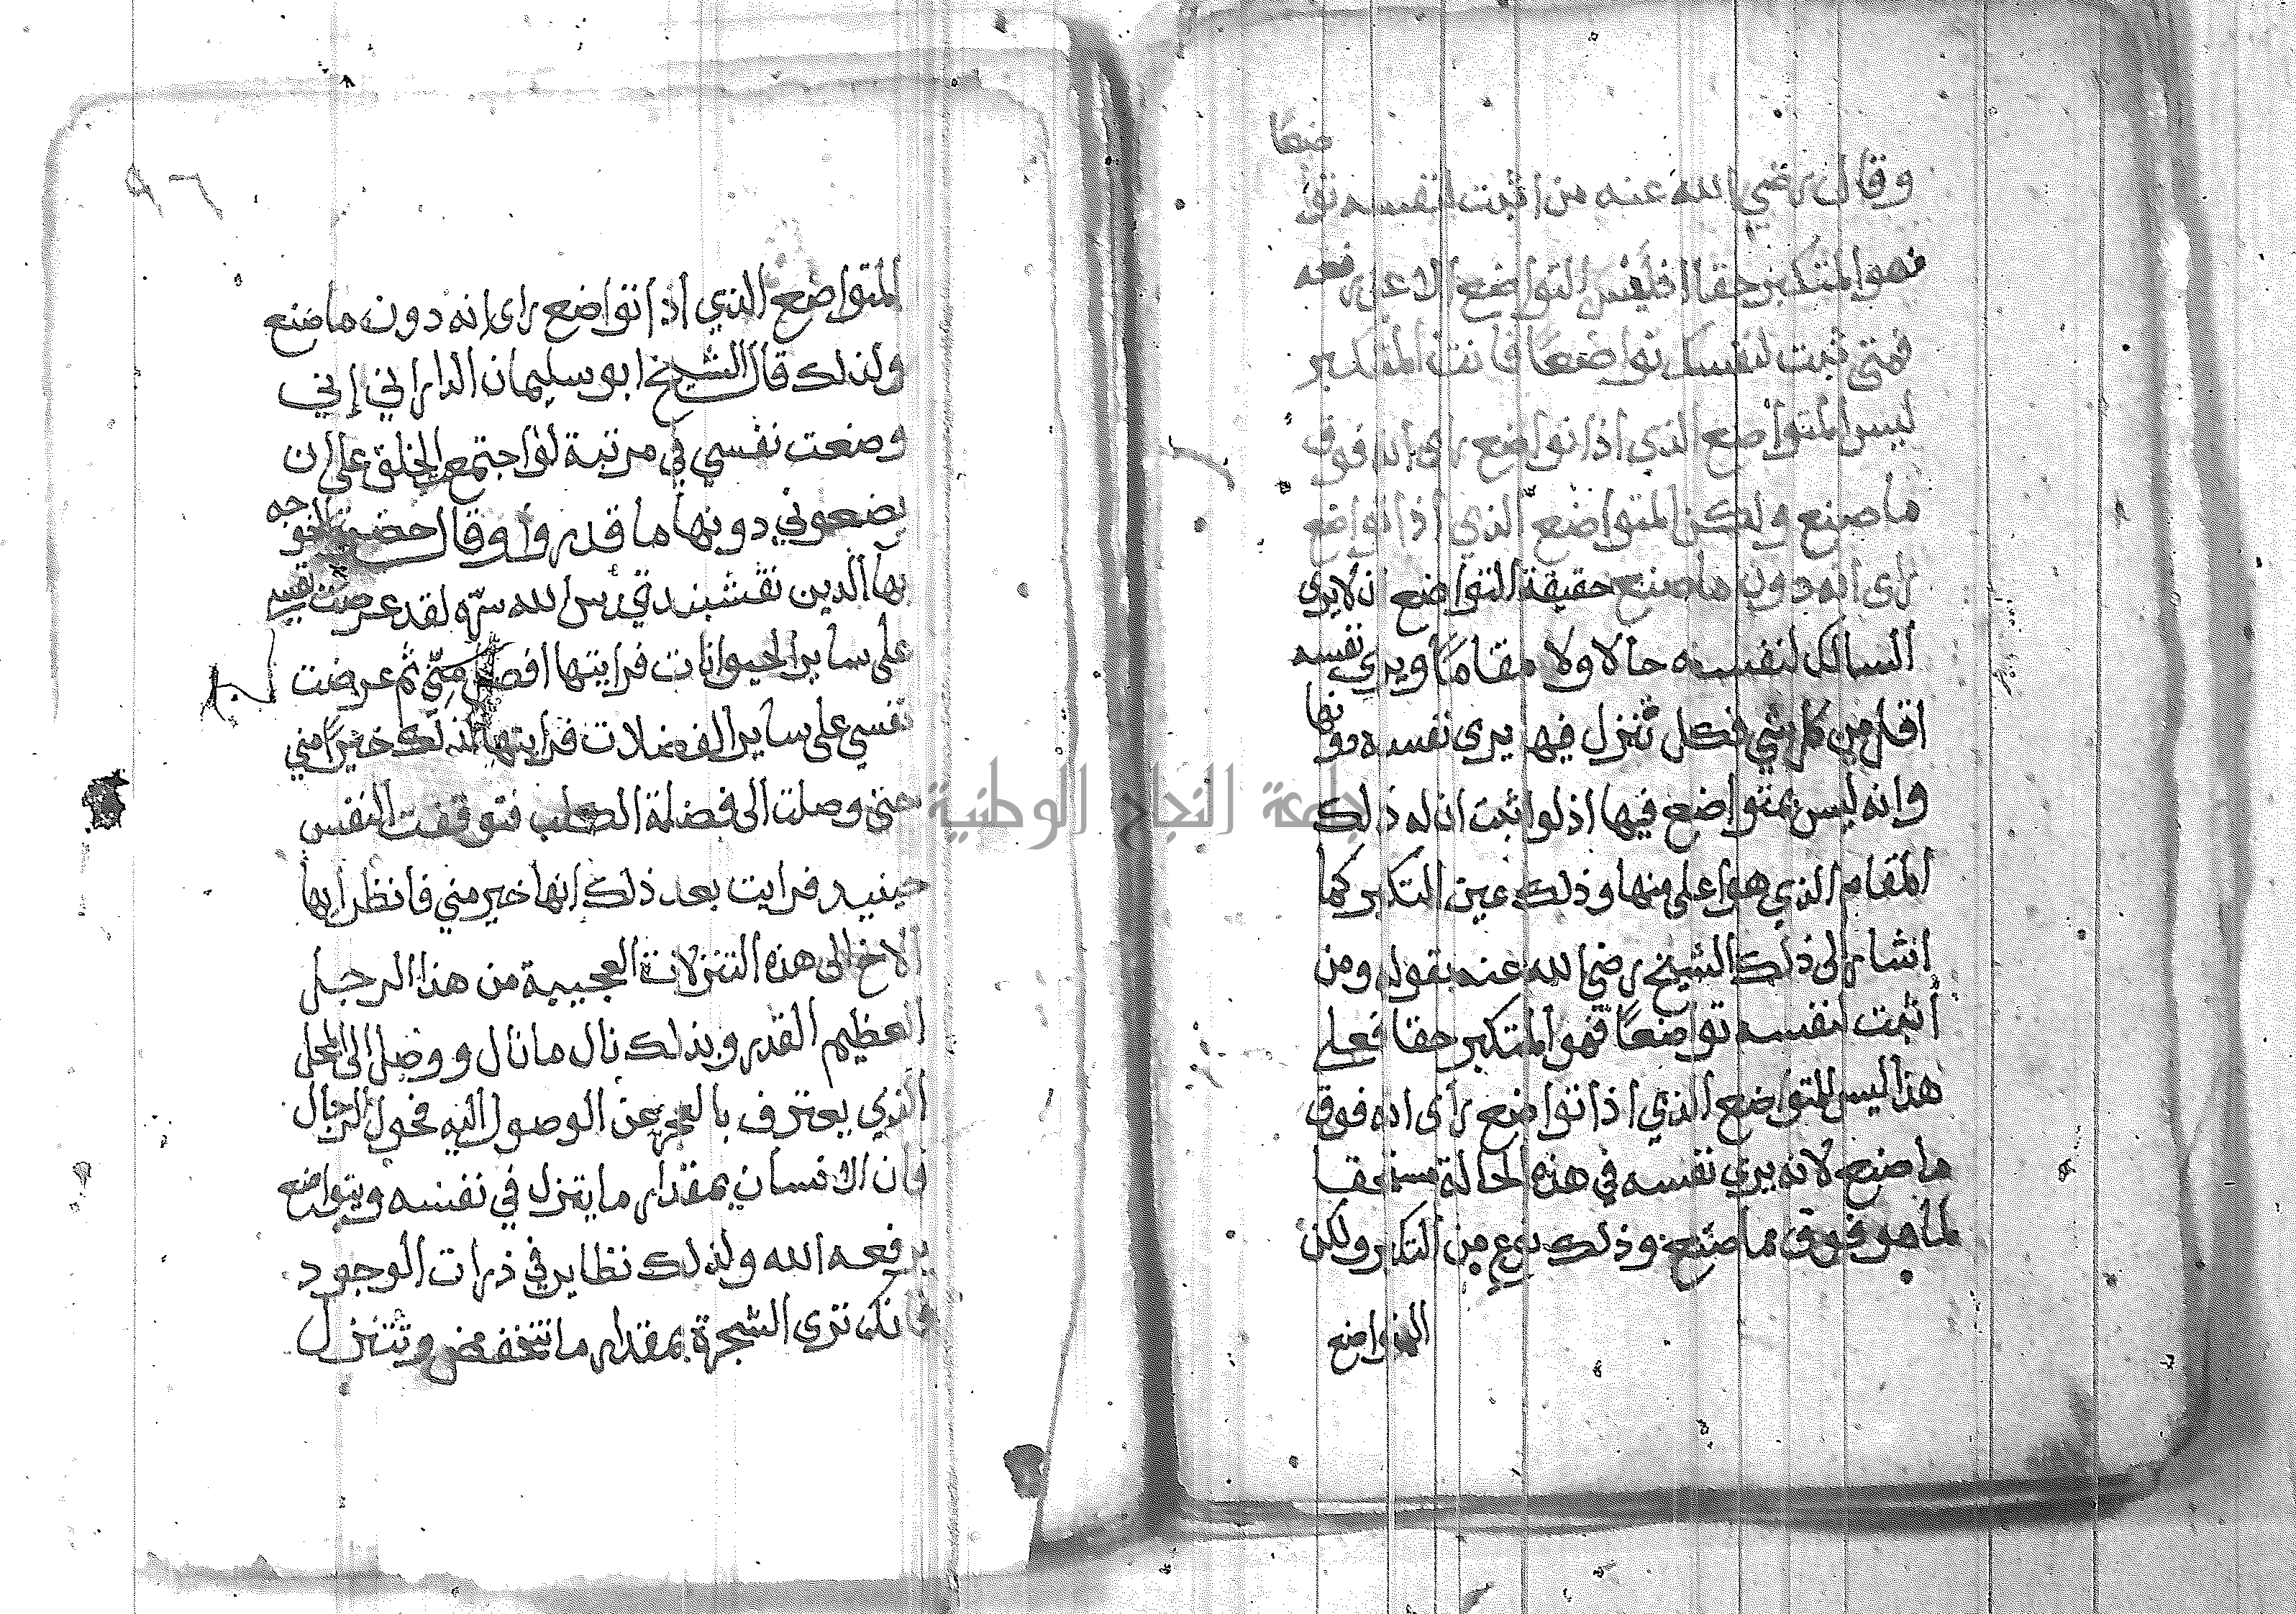 وقال رضي الله عنه من اثبت لنفسه تواضعا
فهو المتكبر حقا اذ ليس التواضع الا عن رفعه
فمتى ثبت لنفسك تواضعا فانت المتكبر
ليس المتواضع الذي اذا تواضع راى انه فوق
ما صنع ولكن المتواضع الذي اذا تواضع
راى انه دون ما صنع حقيقة التواضع ان لا يرى
السالك لنفسه حالا ولا مقاما ويرى نفسه
اقل من كل شي فكل تنزل فيه يرى نفسه دونها
وانه ليس بمتواضع فيها اذ لو اثبت ان له ذلك
المقام الذي هو اعلى منها وذلك عين التكبر كما
اشار الى ذلك الشيخ رضي الله عنه بقوله ومن
أثبت لنفسه تواضعًا فهو المتكبر حقا فعلى
هذا ليس المتواضع الذي اذا تواضع رأى انه فوق
ما صنع لانه يرى نفسه في هذه الحالة مستحقا
لما هو فوق ما صنع وذلك نوع من التكبر ولكن
المتواضع
٩٦
المتواضع الذي اذا تواضع راى انه دون ما صنع
ولذلك قال الشيخ ابو سليمان الداراني إني
وضعت نفسي في مرتبة لو اجتمع الخلق على ان
يضعوني دونها ما قدروا وقال حضرة الخوجه
بها الدين نقشبند قدس الله سرّه لقد عرضت نفسي
على ساير الحيوانات فرايتها افضل منّي ثم عرضت
نفسي على ساير الفضلات فرايتها كذلك خيرًا مني
حتى وصلت الى فضلة الكلب فتوقفت النفس
حينيد فرايت بعد ذلك انها خير مني فانظر ايها
الاخ الى هذه التنزلات العجيبة من هذا الرجل
العظيم القدر وبذلك نال ما نال ووصل الى المحل
الذي يعترف بالعجز عن الوصول اليه فحول الرجال
فان الانسان بمقدار ما يتنزل في نفسه ويتواضع
يرفعه الله ولذلك نظاير في ذرات الوجود
فانك ترى الشجرة بمقدار ما تنخفض وتتنزل
جامعة النجاح الوطنية